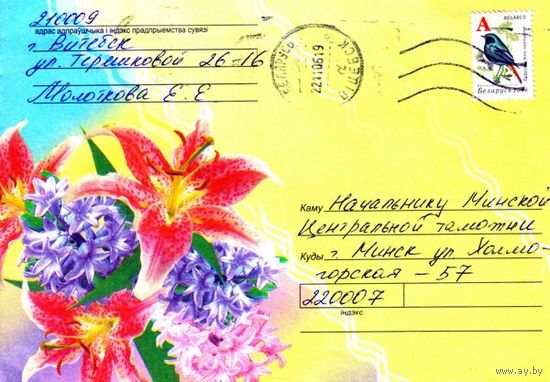 210009
адрас адпраўшчыка і індэкс прадпрыемства сувязі
г. Витебск
ул. Терешковой 26-16
Молоткова Е. Е
БЕЛАРУСЬ
22110619
ВІЦЕБСК
A
BELARUS
Беларусь 2006
Каму Начальнику Минской
Центральной таможни
Куды г. Минск ул Холмо-
горская - 57
220007
індэкс
www.ay.by